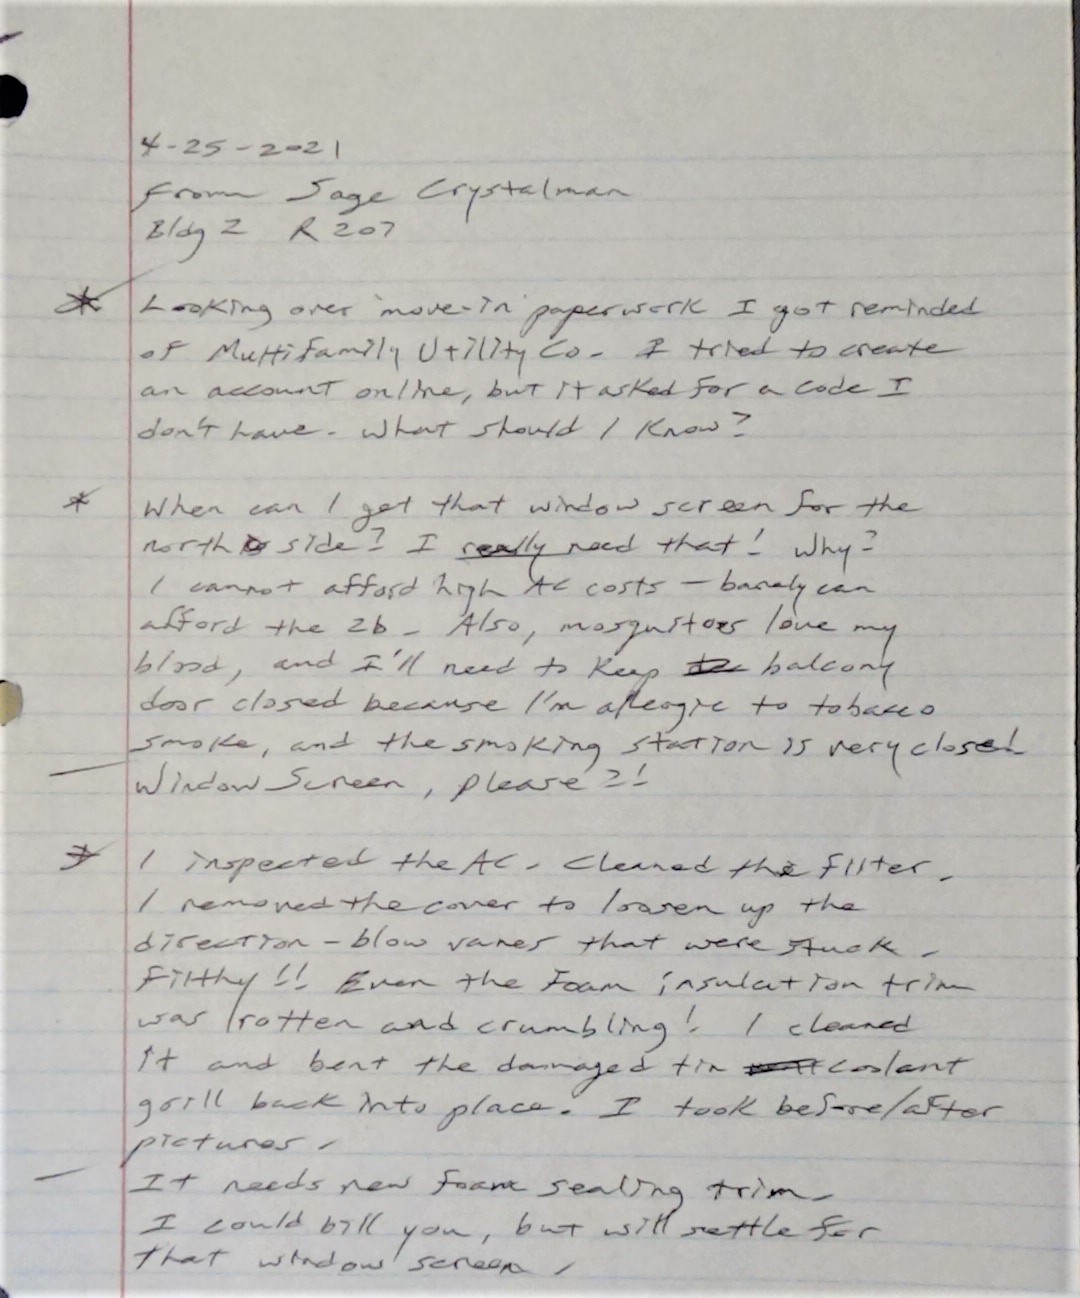 4-25-2021
From Sage Crystalman
Bldg 2 R 207
* Looking over 'move-in' paperwork I got reminded
of Multifamily Utility Co. I tried to create
an account online, but it asked for a code I
don't have. What should I know?
* When can I get that window screen for the
north side? I really need that! Why?
I cannot afford high AC costs - barely can
afford the 2b. Also, mosquitoes love my
blood, and I'll need to keep balcony
door closed because I'm allergic to tobacco
smoke, and the smoking station is very close!
Window Screen, please?!
* I inspected the AC. Cleaned the filter.
I removed the cover to loosen up the
direction-blow vanes that were stuck.
Filthy!! Even the Foam insulation trim
was rotten and crumbling! I cleaned
it and bent the damaged tin coolant
grill back into place. I took before/after
pictures.
It needs new foam sealing trim.
I could bill you, but will settle for
that window screen.